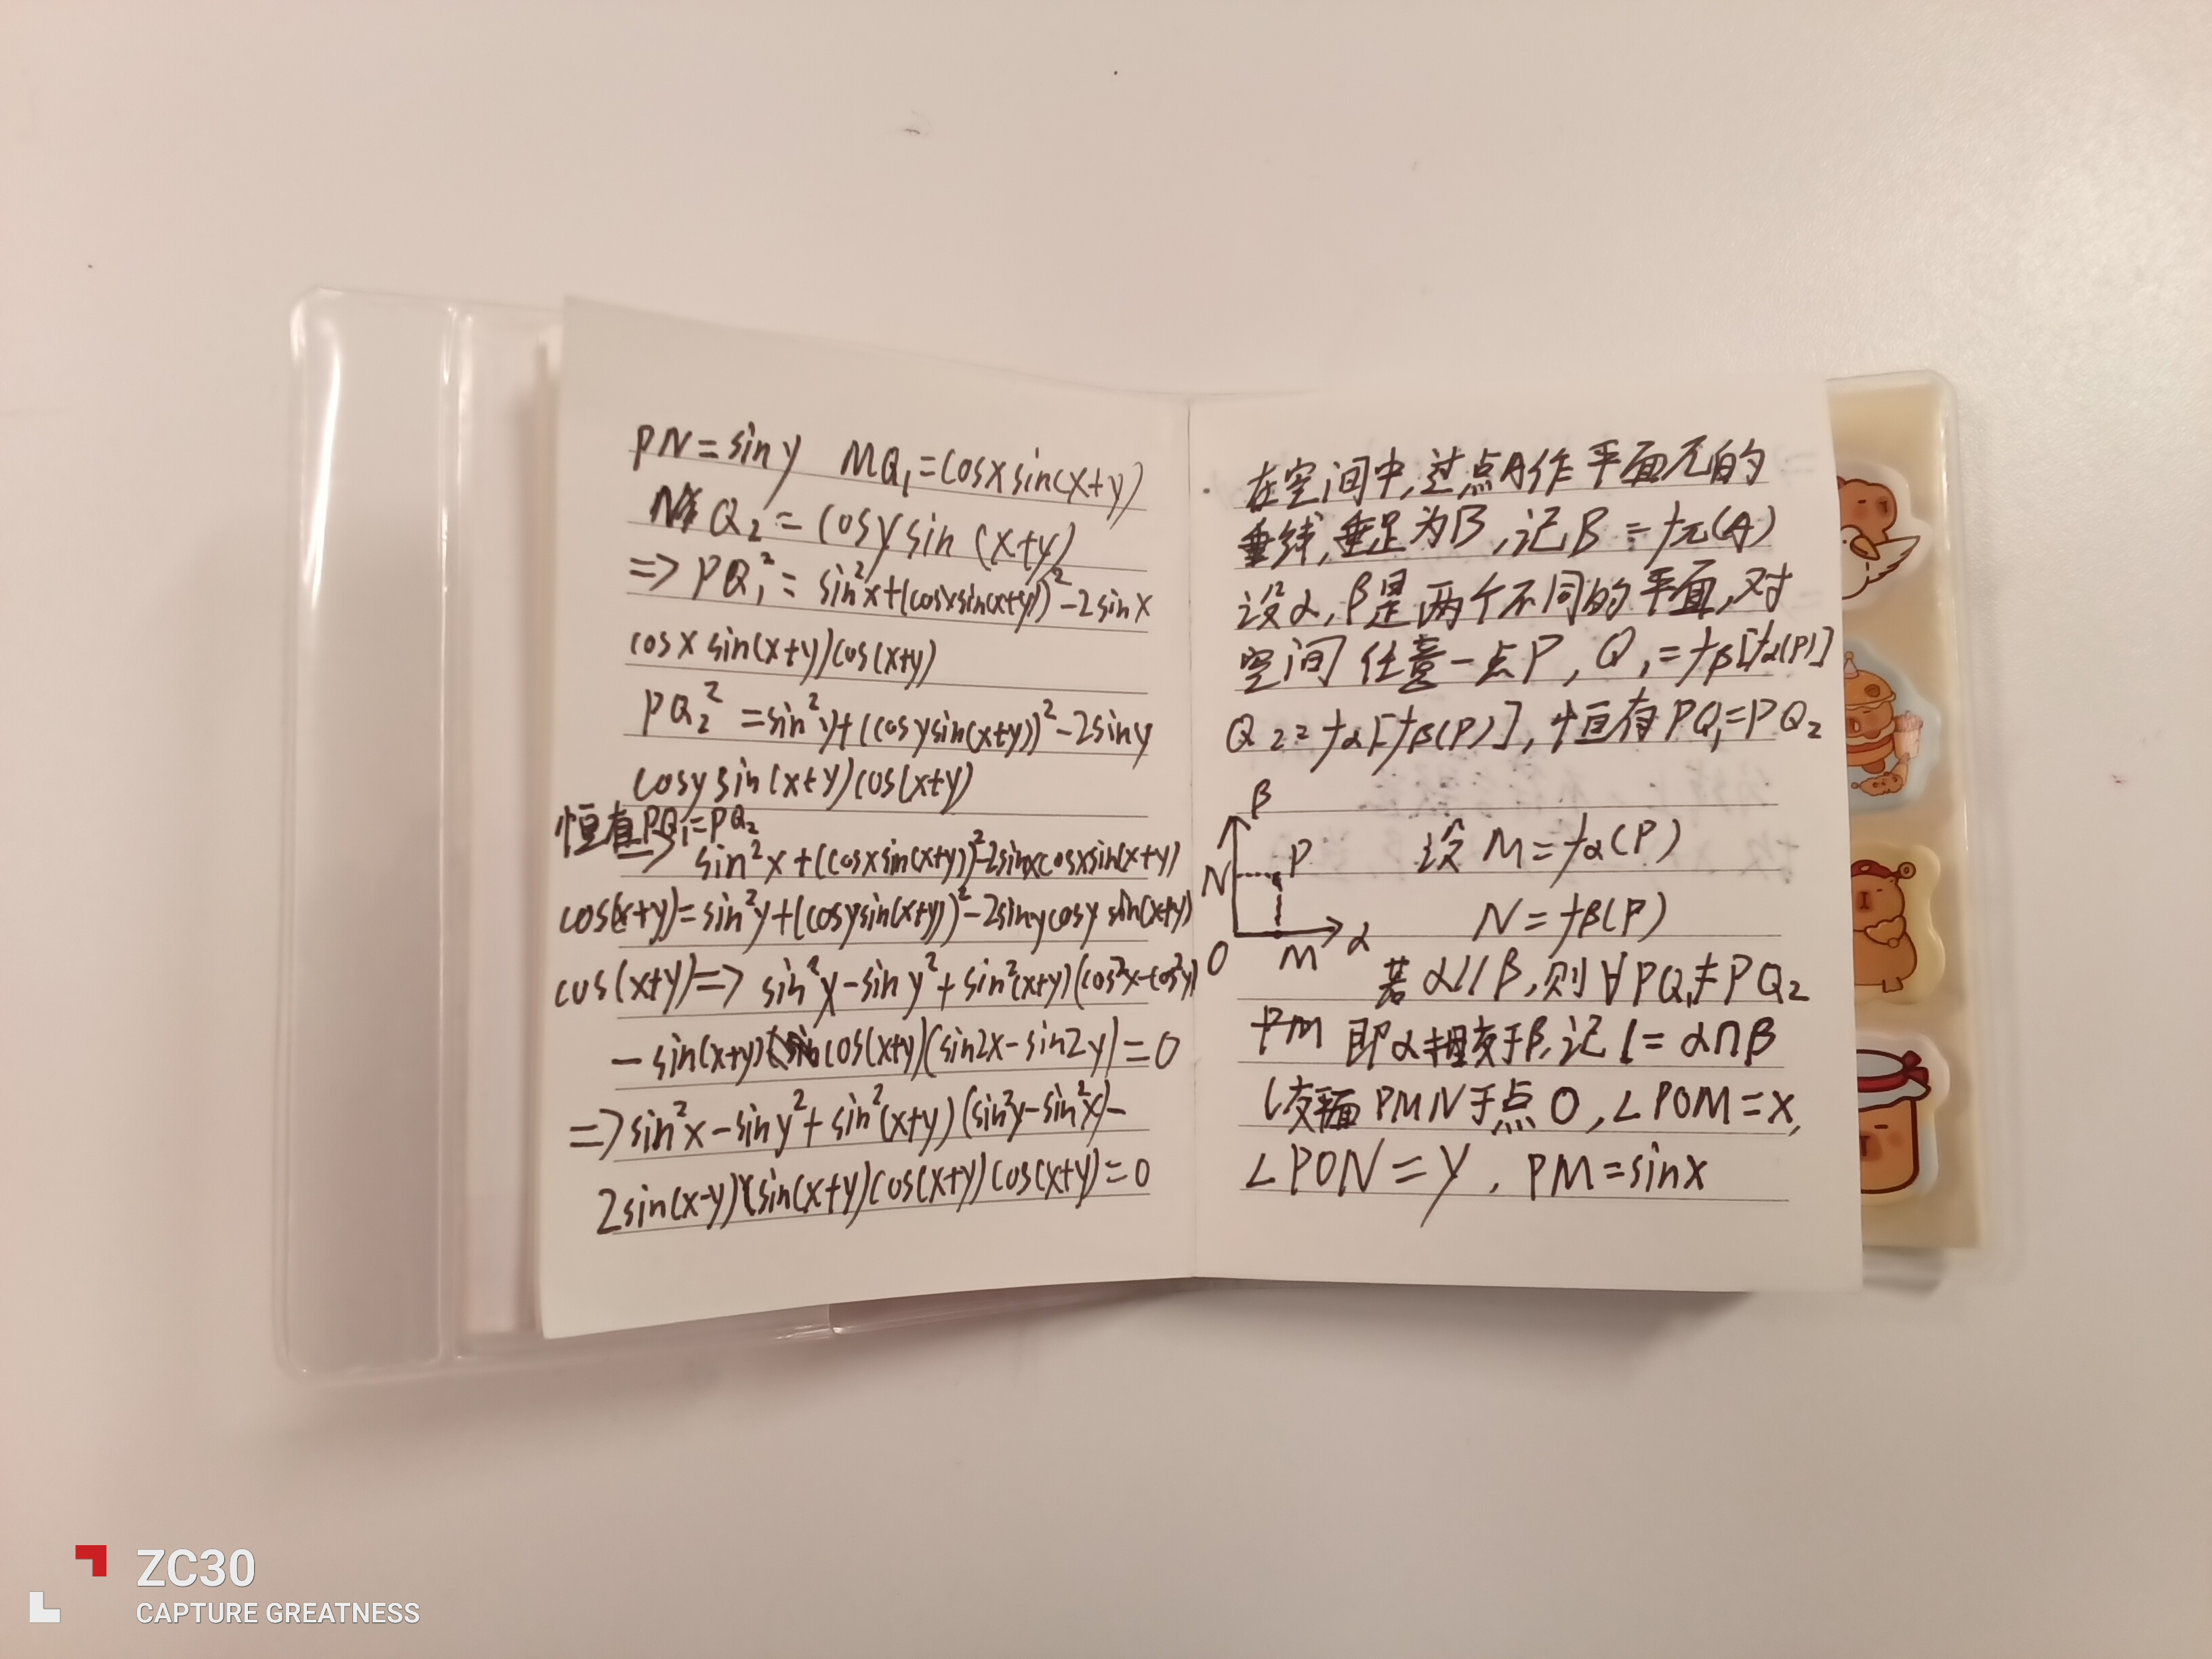 PN=siny MQ₁=cosxsin(x+y)
Q₂=cosysin(x+y)
=>PQ₁²=sin²x+(cosxsin(x+y))²-2sinx
cosxsin(x+y)cos(x+y)
PQ₂²=sin²y+(cosysin(x+y))²-2siny
cosysin(x+y)cos(x+y)
恒有PQ₁=PQ₂
=>sin²x+(cosxsin(x+y))²-2sinxcosxsin(x+y)
cos(x+y)=sin²y+(cosysin(x+y))²-2sinycosysin(x+y)
cos(x+y)=>sin²y-siny²+sin²(x+y)(cos²x-cos²y)
-sin(x+y)cos(x+y)(sin2x-sin2y)=0
=>sin²x-siny²+sin²(x+y)(sin²y-sin²x)-
2sin(x-y)(sin(x+y)cos(x+y)cos(x+y)=0
在空间中,过点A作平面π的
垂线,垂足为B,记B=fπ(A)
设α,β是两个不同的平面,对
空间任意一点P,Q₁=fβ[fα(P)]
Q₂=fα[fβ(P)],恒有PQ₁=PQ₂
β
设M=fα(P)
P
N
N=fβ(P)
O M α
若α//β,则∀PQ₁≠PQ₂
PM 即α相交于β,记l=α∩β
l交平面PMN于点O,∠POM=x,
∠PON=y,PM=sinx
ZC30
CAPTURE GREATNESS